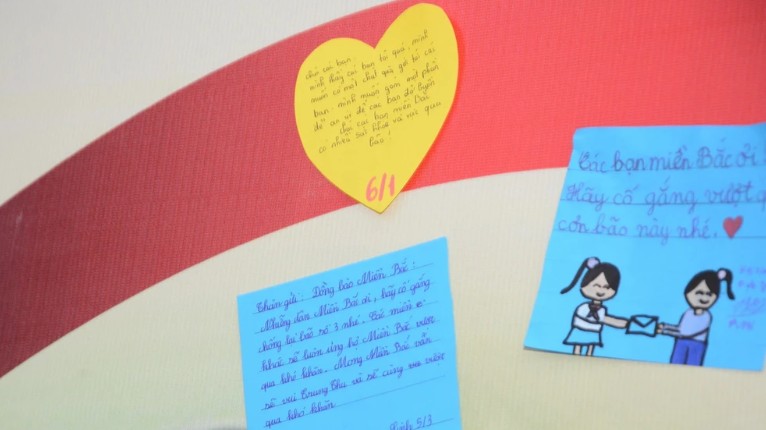 chào các bạn!
mình thấy các bạn bị quá, mình
muốn có một chút quà gửi tới các
bạn. mình muốn gom một phần
để an ủi để các bạn đỡ buồn
chúc các bạn miền Bắc
có nhiều sức khỏe và vượt qua
bão!
6/1
Các bạn miền Bắc ơi!
Hãy cố gắng vượt q
cơn bão này nhé.
Thân gửi: Đồng bào Miền Bắc:
Những dân Miền Bắc ơi, hãy cố gắng
chống lại bão số 3 nhé. Các miền
khác sẽ luôn ủng hộ Miền Bắc vượt
qua khó khăn. Mong Miền Bắc vẫn
sẽ vui Trung Thu và sẽ cùng vượt
qua khó khăn
5/3